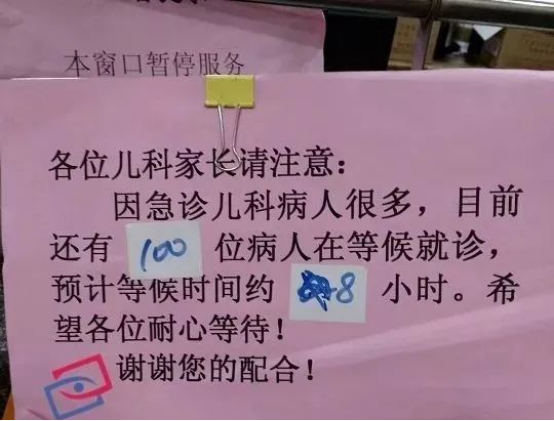 本窗口暂停服务
各位儿科家长请注意：
因急诊儿科病人很多，目前
还有 100 位病人在等候就诊，
预计等候时间约 8 小时。希
望各位耐心等待！
谢谢您的配合！